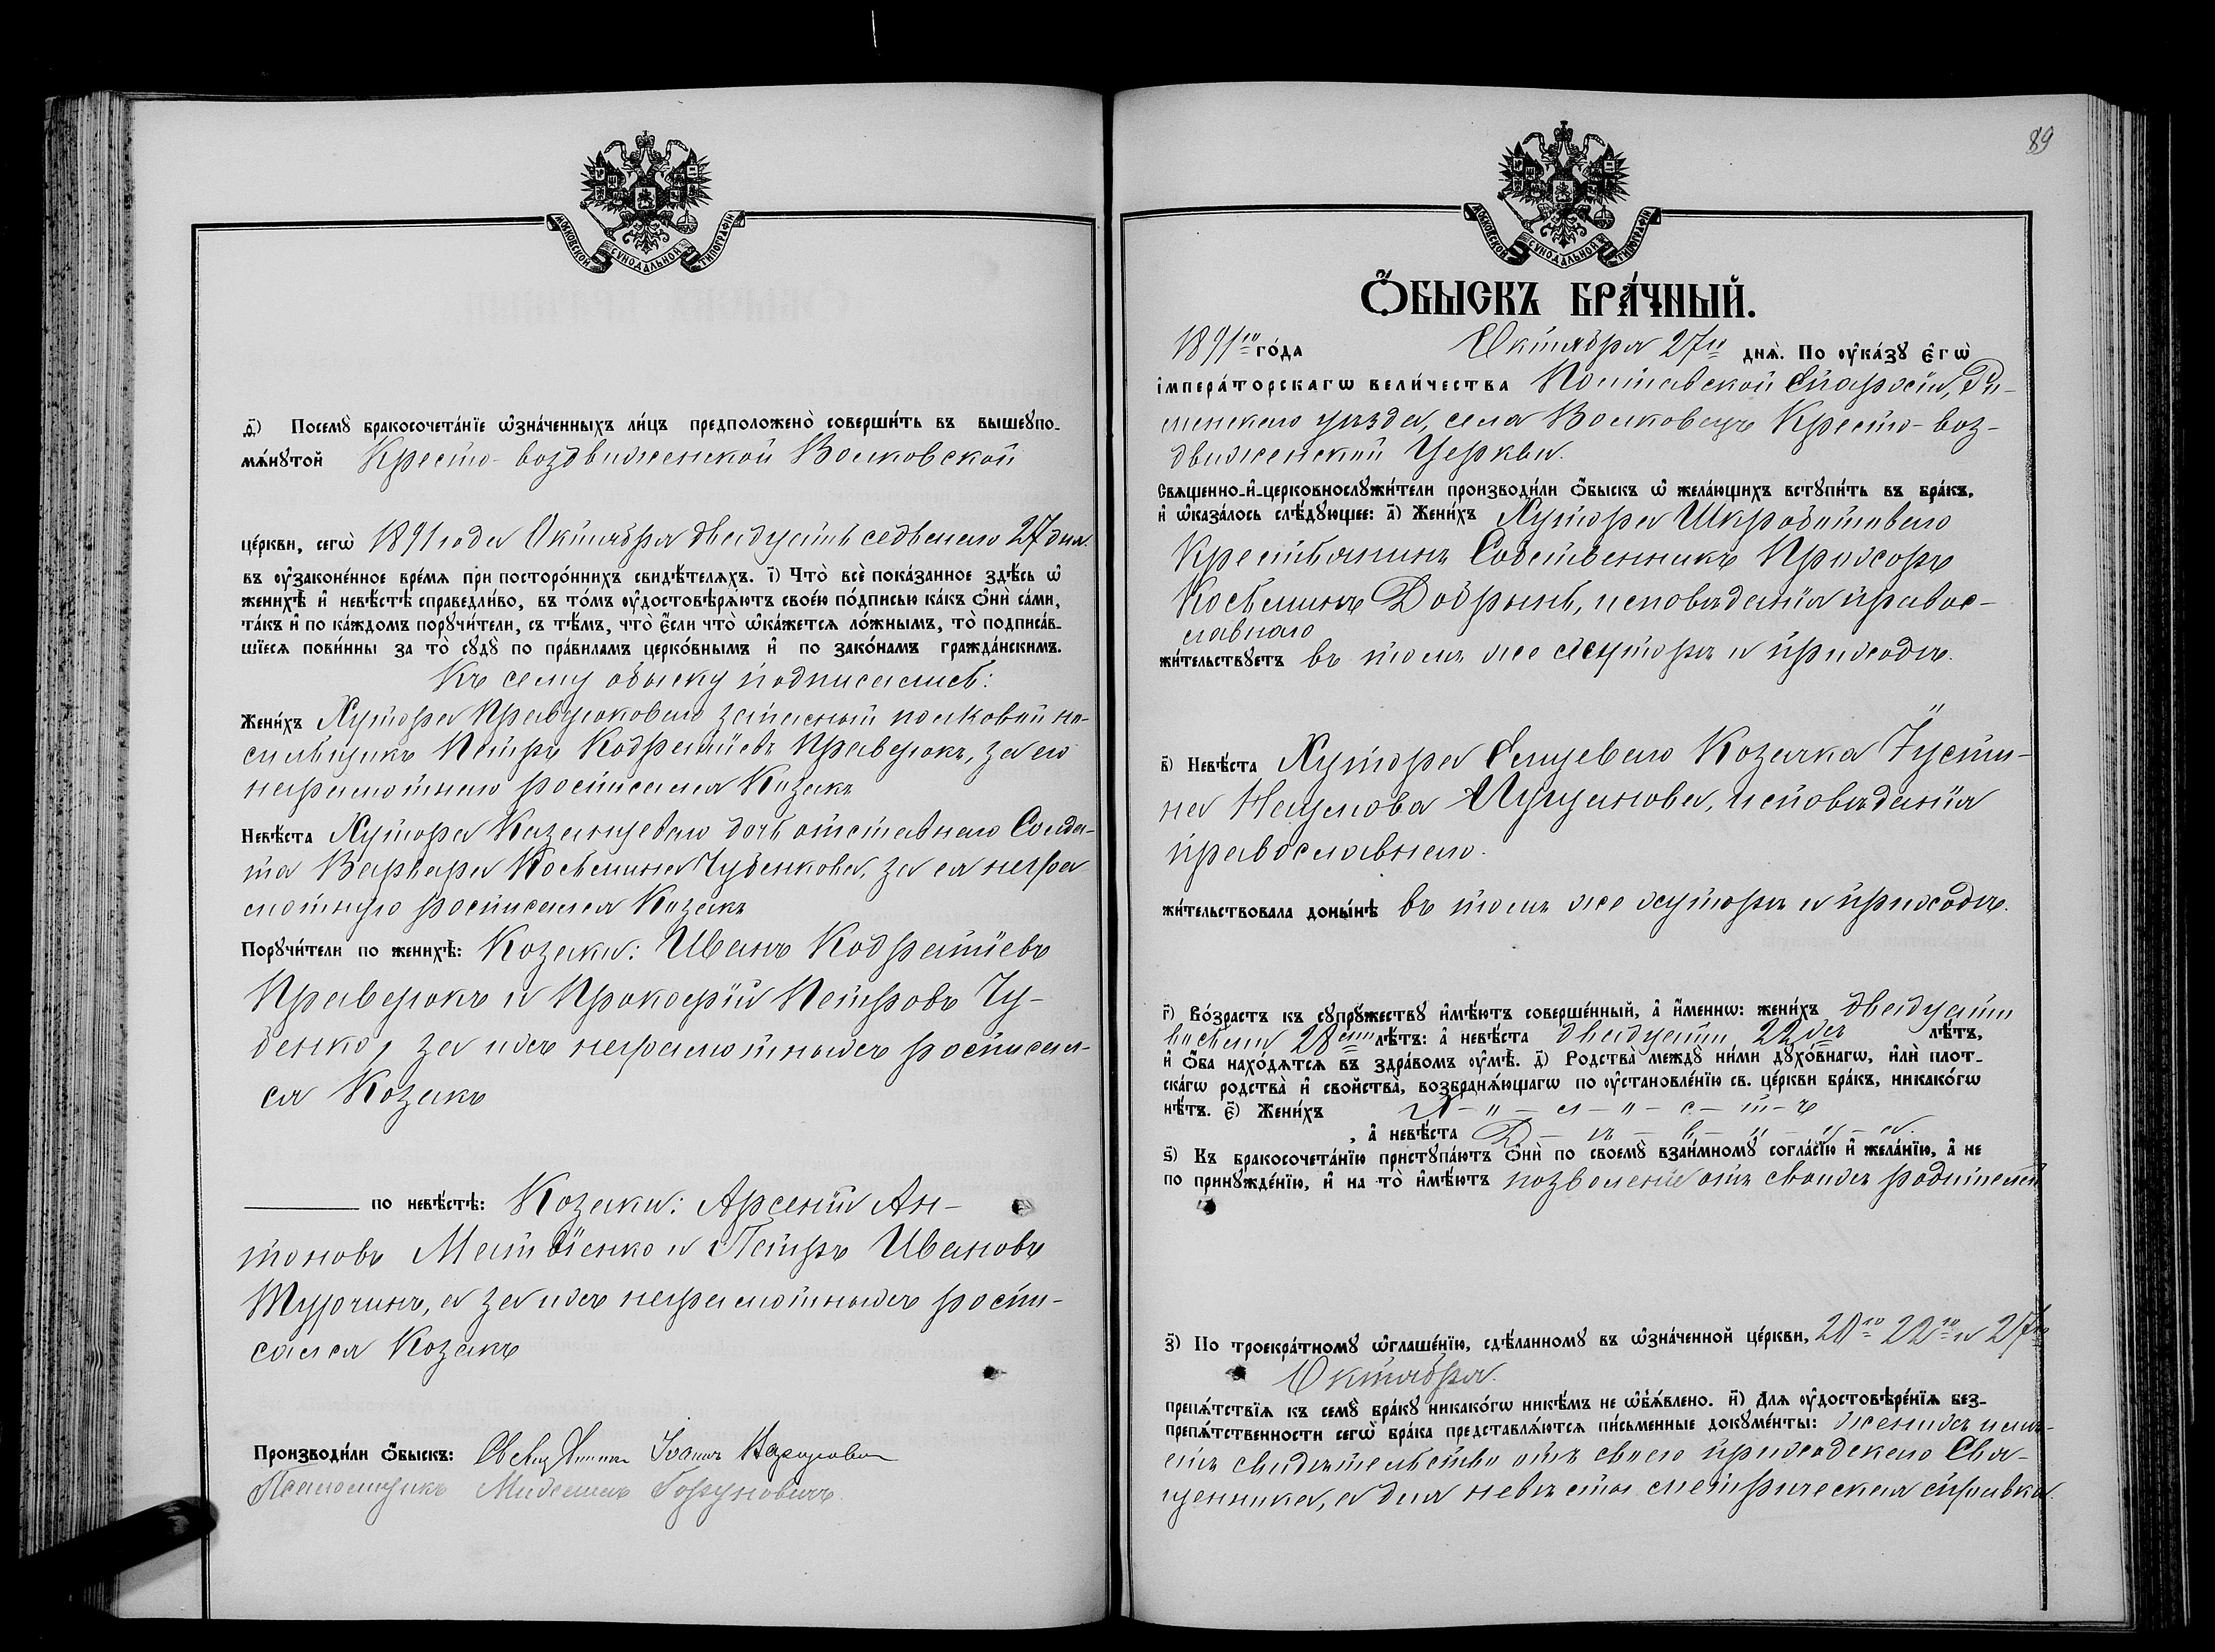 МОСКОВСКОЙ СѴНОДАЛЬНОЙ ТИПОГРАФІИ
ѳ҃) Посемꙋ бракосочета́нїе ѡ҆зна́ченныхъ ли́цъ предположено̀ соверши́ть въ вышеꙋпо-
мѧ́нꙋтой Кресто-воздвиженской Волковской
це́ркви, сегѡ̀ 1891 года Октября двадцать седьмого 27 дня.
въ ᲂу҆законе́нное вре́мѧ при посторо́ннихъ свидѣ́телѧхъ. і҃) Что̀ всѐ пока́занное здѣ́сь ѡ҆
женихѣ̀ и҆ невѣ́стѣ справедли́во, въ то́мъ ᲂу҆достовѣрѧ́ютъ свое́ю по́дписью ка́къ ѻ҆нѝ са́ми,
та́къ и҆ по ка́ждомъ порꙋчи́тели, съ тѣ́мъ, что̀ є҆́сли что̀ ѡ҆ка́жетсѧ ло́жнымъ, то̀ подписа́в-
шїесѧ пови́нны за то̀ сꙋдꙋ̀ по пра́виламъ церко́внымъ и҆ по зако́намъ гражда́нскимъ.
Къ сему обыску подписались:
Жени́хъ Хутора Правдюкового запасный полковой но-
сильщикъ Петръ Кодратіевъ Правдюкъ, за его
неграмотного росписался Козакъ
Невѣ́ста Хутора Казанцевого дочь отставного Солда-
та Варвара Косьмина Чуденкова, за ея негра
мотную росписался Козакъ
Порꙋчи́тели по женихѣ̀: Козаки: Иванъ Кодратіевъ
Правдюкъ и Прокофій Петровъ Чу-
денко, за ихъ неграмотныхъ росписал-
ся Козакъ
по невѣ́стѣ: Козаки: Арсеній Ан-
тоновъ Матвіенко и Петръ Ивановъ
Турчинъ, а за ихъ неграмотныхъ роспи-
сался Козакъ
Производи́ли ѻ҆́быскъ: Іоаннъ
Псаломщикъ Михаилъ
89
МОСКОВСКОЙ СѴНОДАЛЬНОЙ ТИПОГРАФІИ
Ѻ҆́БЫСКЪ БРА́ЧНЫЙ.
1891го го́да Октября 27го днѧ̀. По ᲂу҆ка́зꙋ є҆гѡ̀
і҆мпера́торскагѡ вели́чества Полтавской Епархіи, Ро-
менского уѣзда, села Волковецъ Кресто-воз-
движенской Церкви.
Свѧщенно-и҆-церковнослꙋжи́тели производи́ли ѻ҆́быскъ ѡ҆ жела́ющихъ встꙋпи́ть въ бра́къ,
и҆ ѡ҆каза́лось слѣ́дꙋющее: а҃) Жени́хъ Хутора
Крестьянинъ Собственникъ
Косьминъ Добрынь, исповѣданія правос-
лавнаго
жи́тельствꙋетъ въ томъ же хуторѣ и приходѣ.
в҃) Невѣ́ста Хутора Козачка Іусти-
на Наумова, исповѣданія
православнаго.
жи́тельствовала доны́нѣ въ томъ же хуторѣ и приходѣ.
г҃) Во́зрастъ къ сꙋпрꙋ́жествꙋ и҆мѣ́ютъ соверше́нный, а҆ и҆́меннѡ: жени́хъ двадцати
восьми 28ми лѣ́тъ: а҆ невѣ́ста двадцати 22ухъ лѣ́тъ,
и҆ ѻ҆́ба нахо́дѧтсѧ въ здра́вомъ ᲂу҆мѣ̀. д҃) Родства̀ междꙋ̀ ни́ми дꙋхо́внагѡ, и҆лѝ плот-
ска́гѡ родства̀ и҆ свойства̀, возбранѧ́ющагѡ по ᲂу҆становле́нїю св. це́ркви бра́къ, никако́гѡ
нѣ́тъ. є҃) Жени́хъ х-о-л-о-с-т-ъ
, а҆ невѣ́ста Д-ѣ-в-и-ц-а.
ѕ҃) Къ бракосочета́нїю пристꙋпа́ютъ ѻ҆нѝ по своемꙋ̀ взаи́мномꙋ согла́сїю и҆ жела́нїю, а҆ не
по принꙋжде́нїю, и҆ на то̀ и҆мѣ́ютъ позволеніе отъ своихъ родителей
з҃) По троекра́тномꙋ ѡ҆глаше́нїю, сдѣ́ланномꙋ въ ѡ҆зна́ченной це́ркви, 20го 22го и 27го
Октября.
препѧ́тствїѧ къ семꙋ̀ бра́кꙋ никако́гѡ никѣ́мъ не ѡ҆б̾ѧ́влено. и҃) Длѧ ᲂу҆достовѣре́нїѧ без-
препѧ́тственности сегѡ̀ бра́ка представлѧ́ютсѧ пи́сьменные докꙋме́нты: женихъ имѣ-
етъ свидѣтельство отъ своего приходского Свя-
щенника, а для невѣсты метрическая справка.